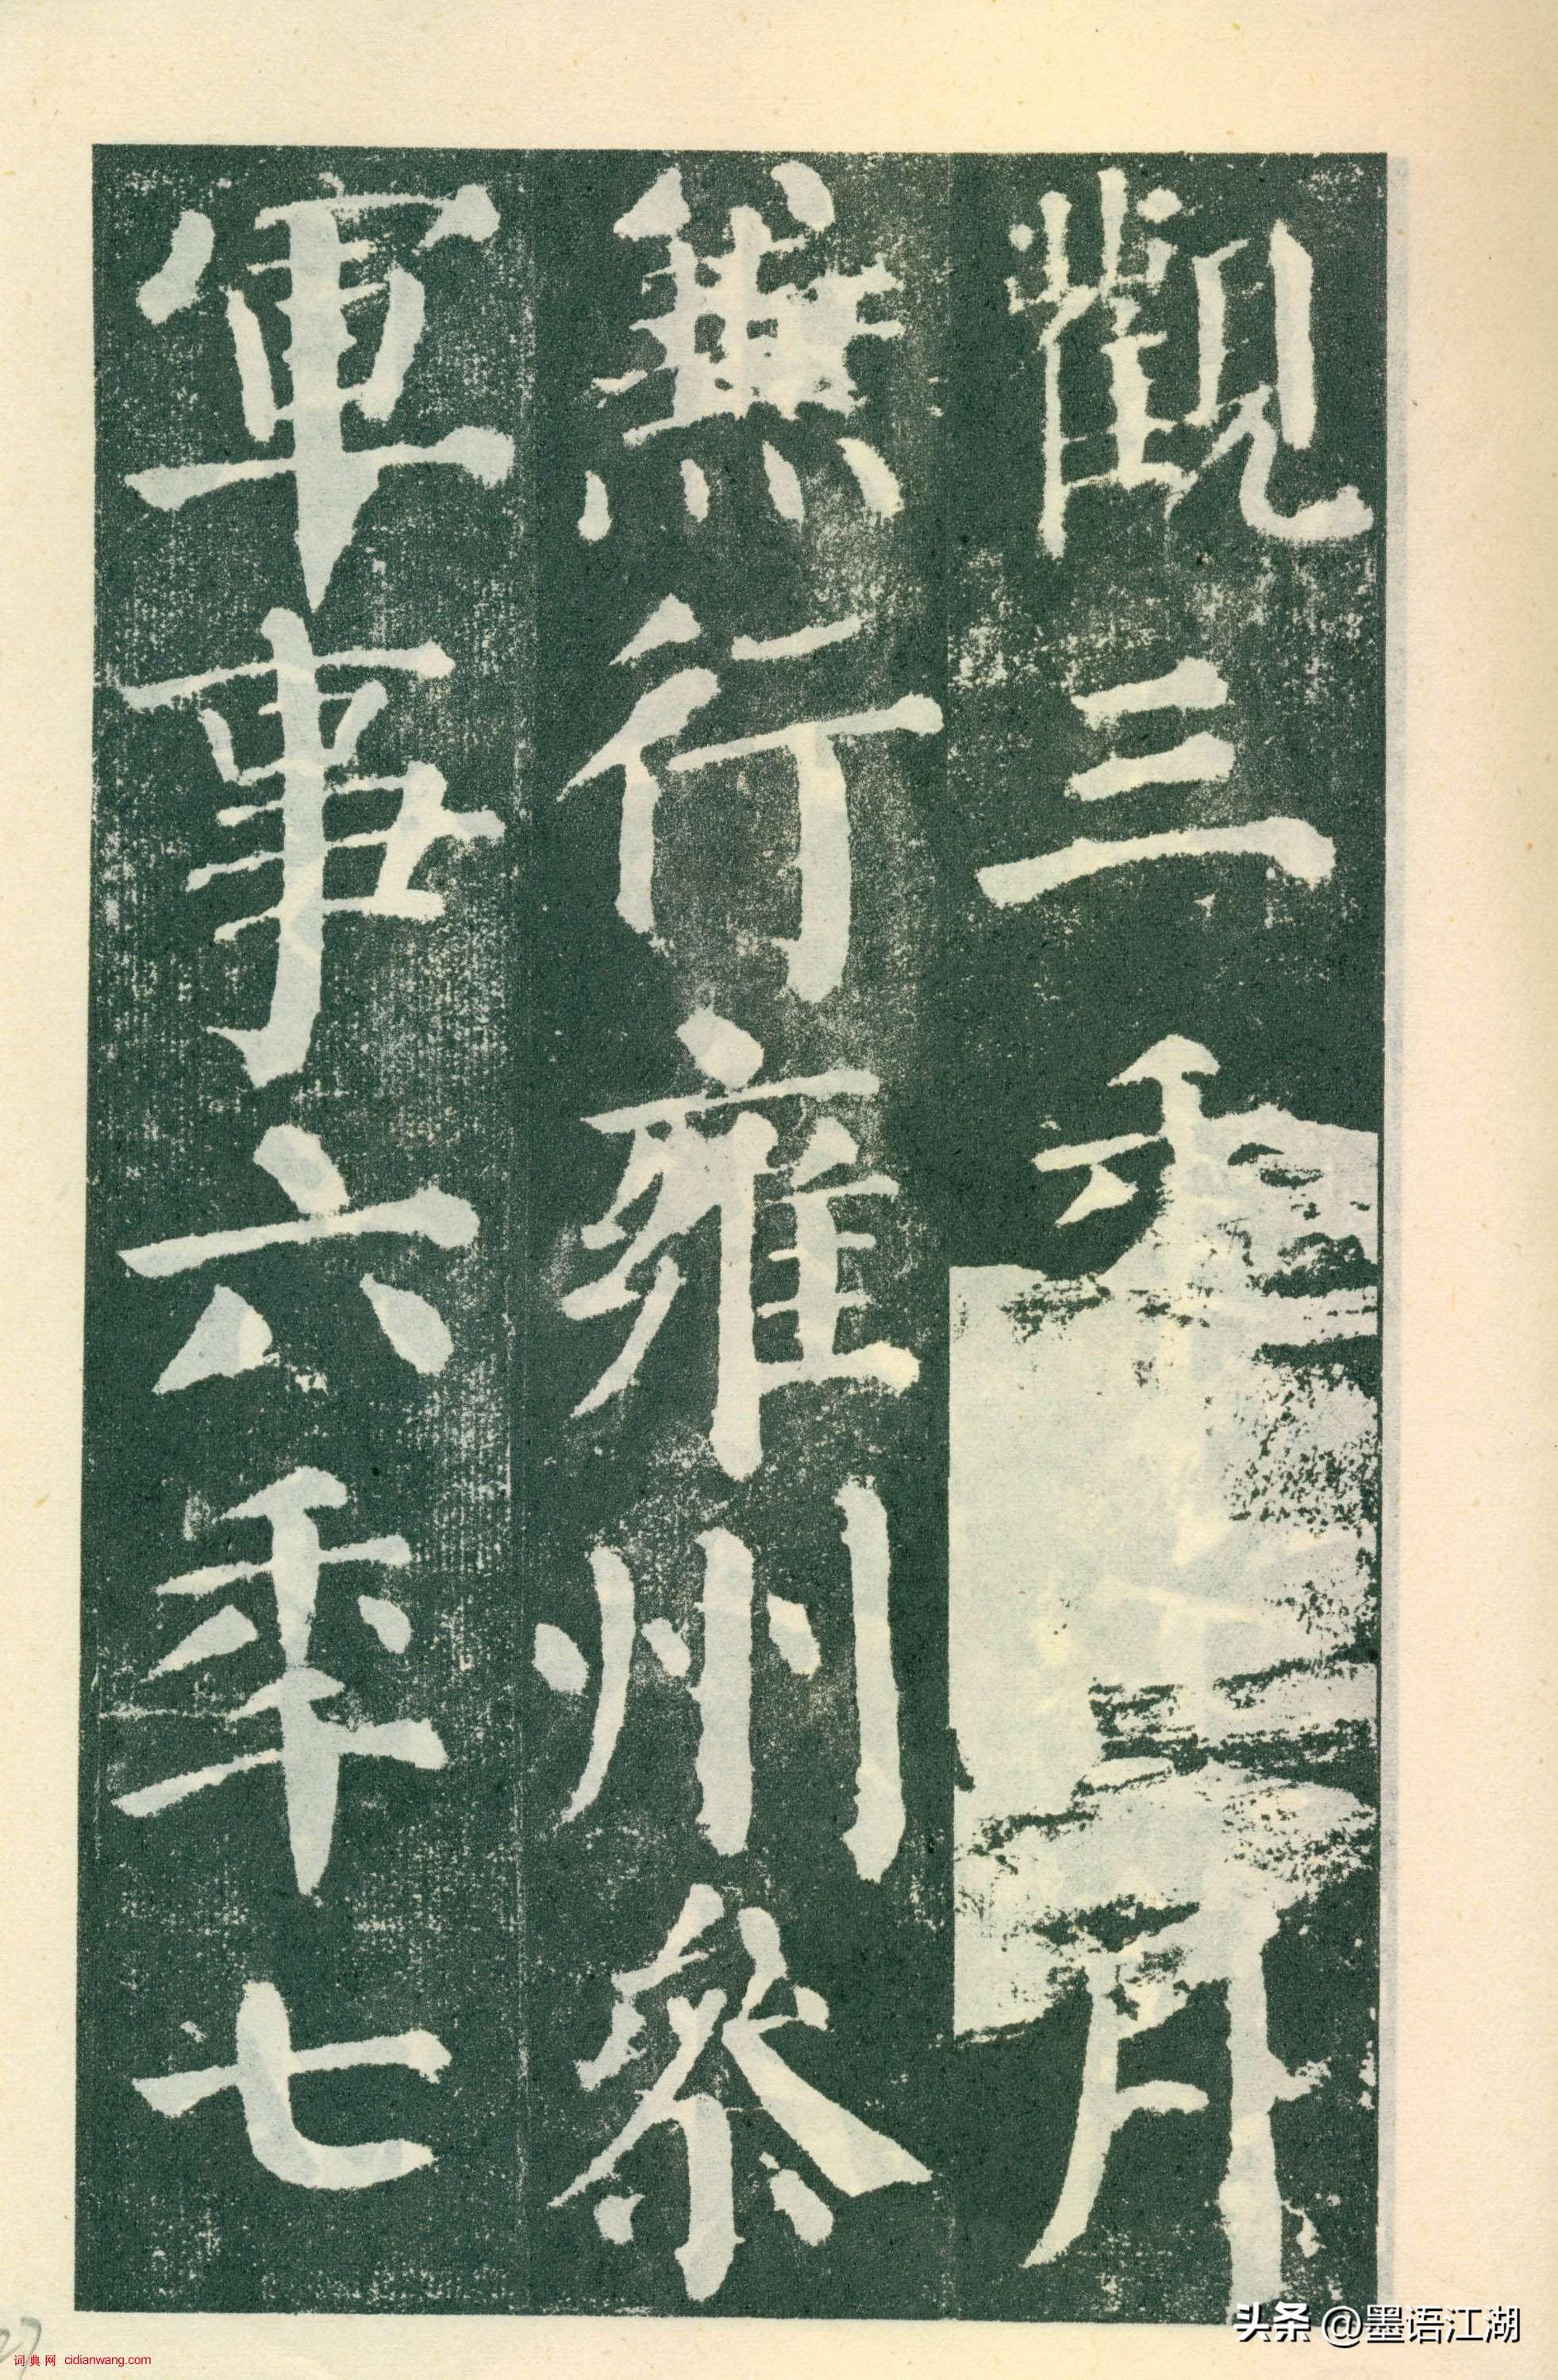 觀三年月
兼行雍州參
軍事六年七
头条 @墨语江湖
27
词典网 cidianwang.com